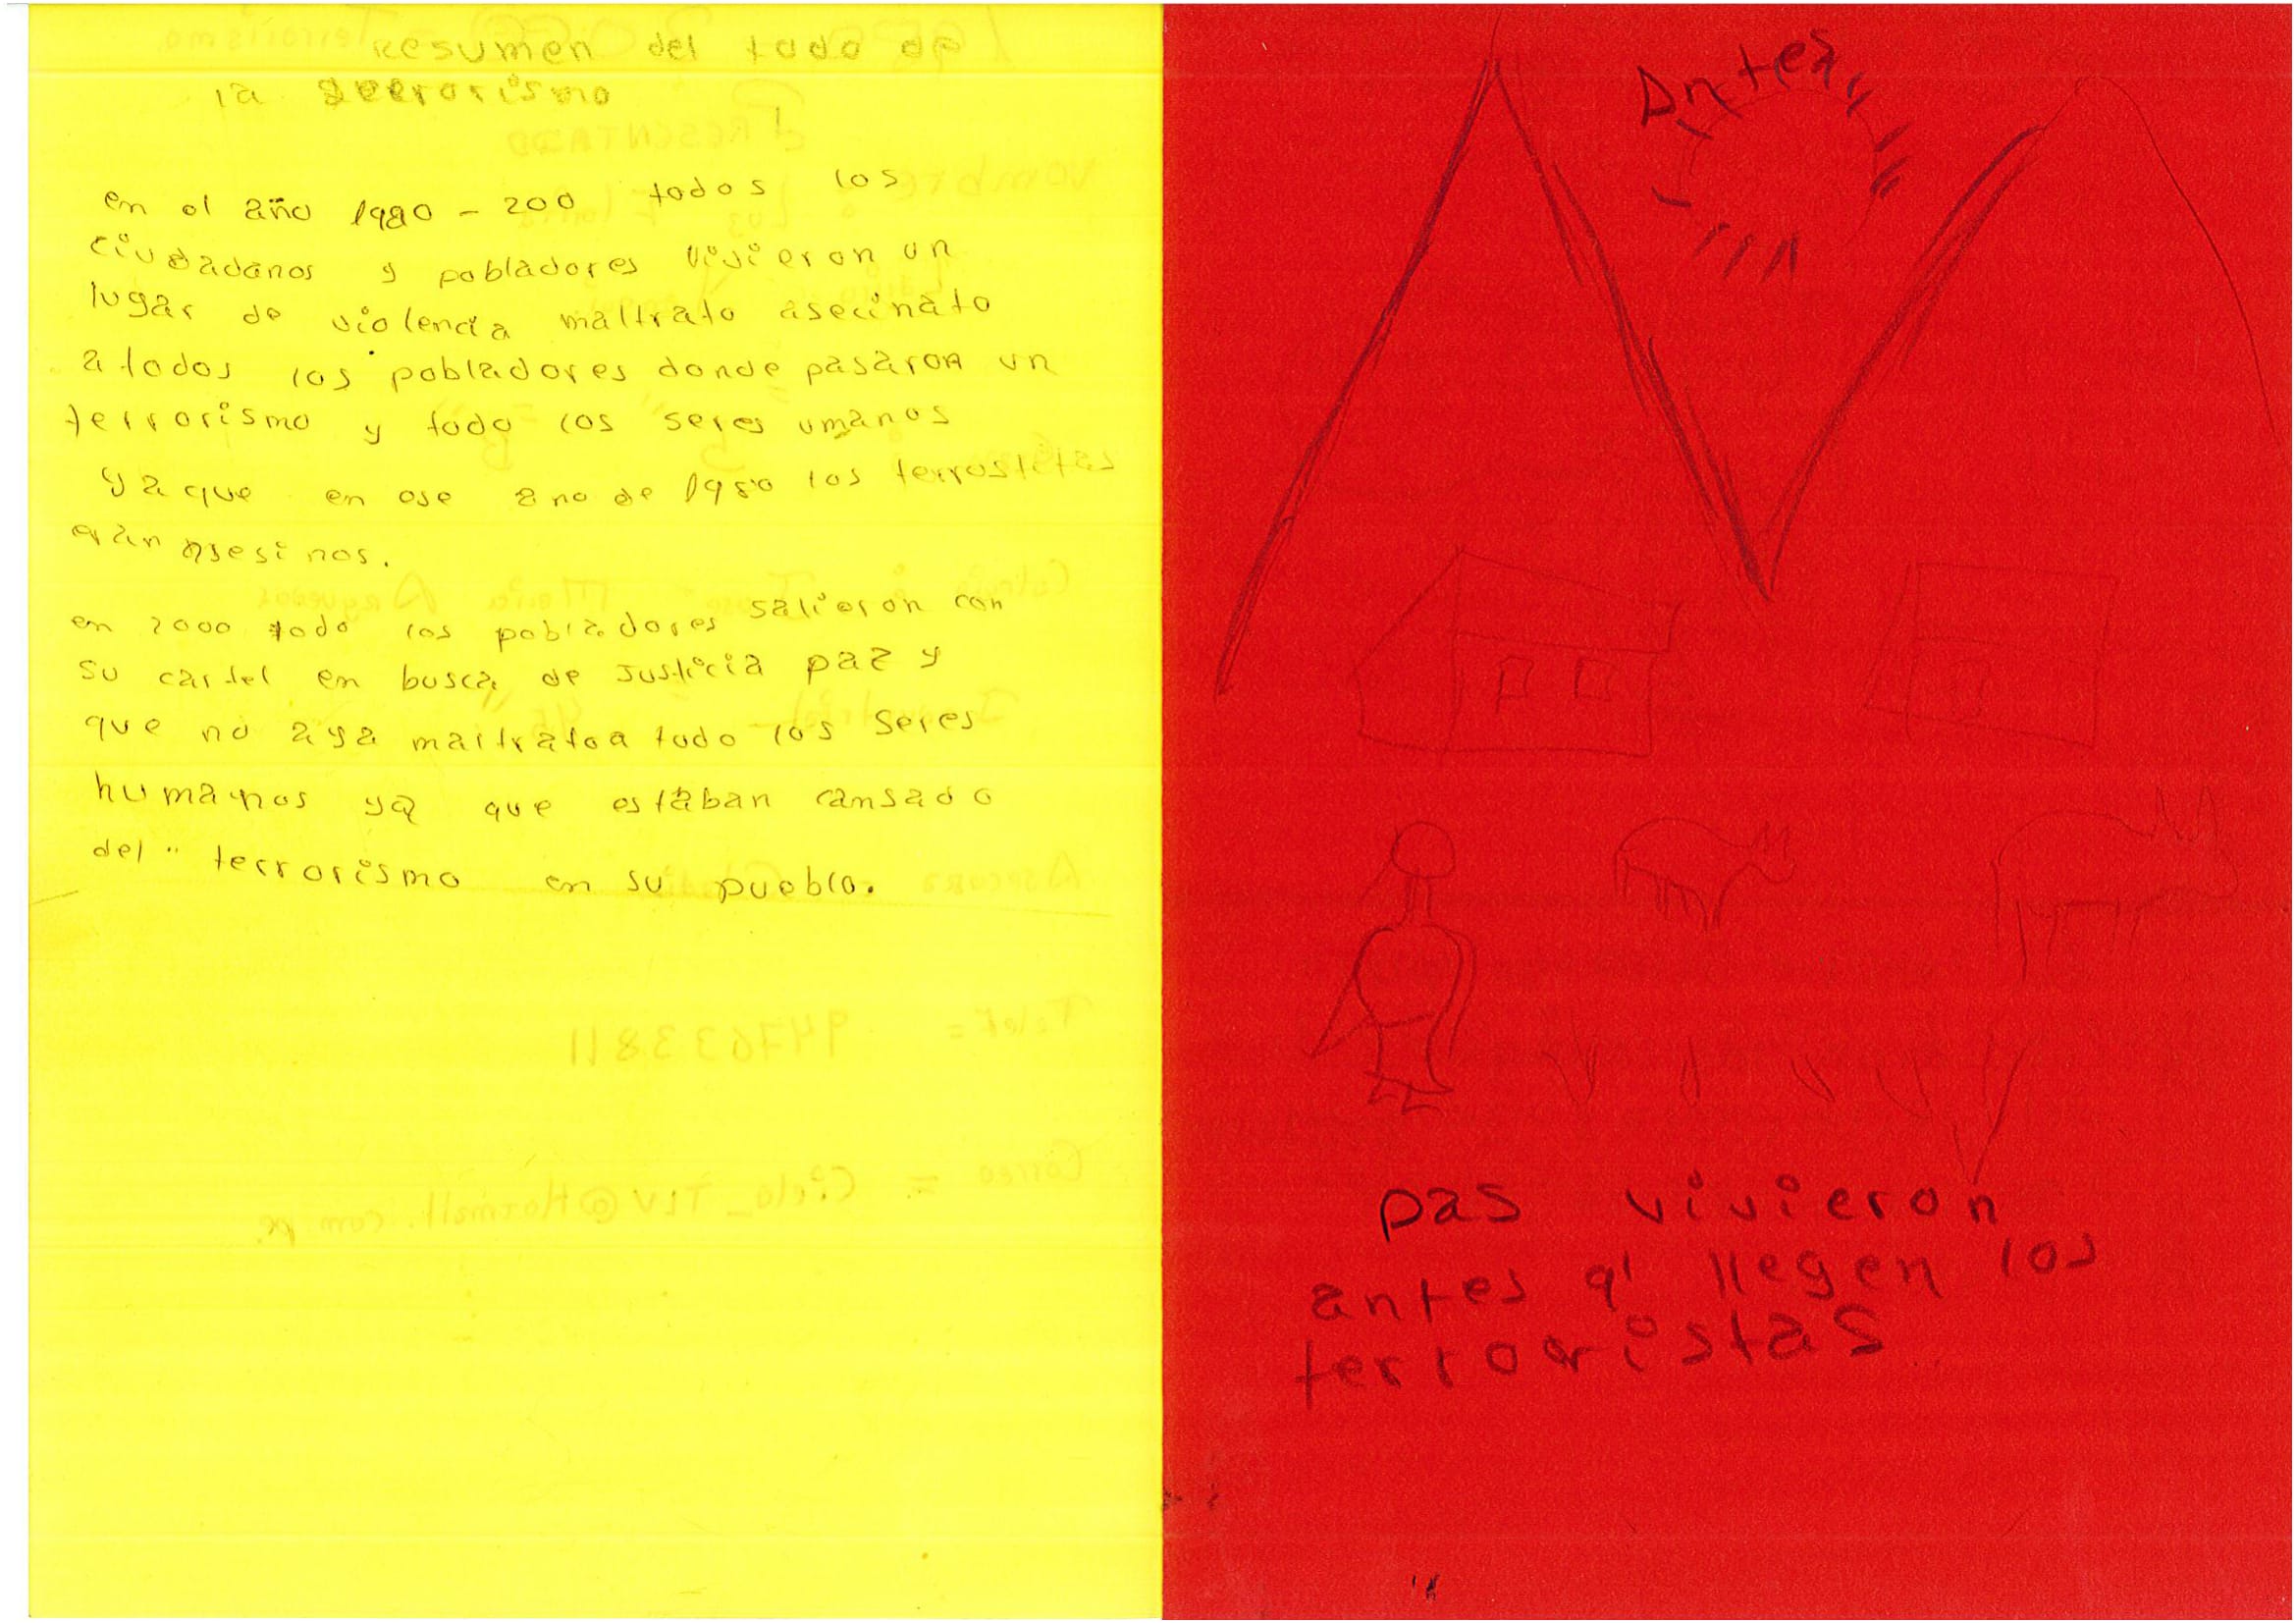 Resumen del todo de
la terrorismo
en el año 1980 - 200 todos los
ciudadanos y pobladores vivieron un
lugar de violencia maltrato asecinato
a todos los pobladores donde pasaron un
terrorismo y todo los seres umanos
ya que en ese ano de 1980 los terrostitas
eran asesinos.
en 2000 todo los pobladores salieron con
su cartel en busca de Justicia paz y
que no aya maltratoa todo los seres
humanos ya que estaban cansado
del " terrorismo en su pueblo.
Antes
pas vivieron
antes q' llegen los
terroristas